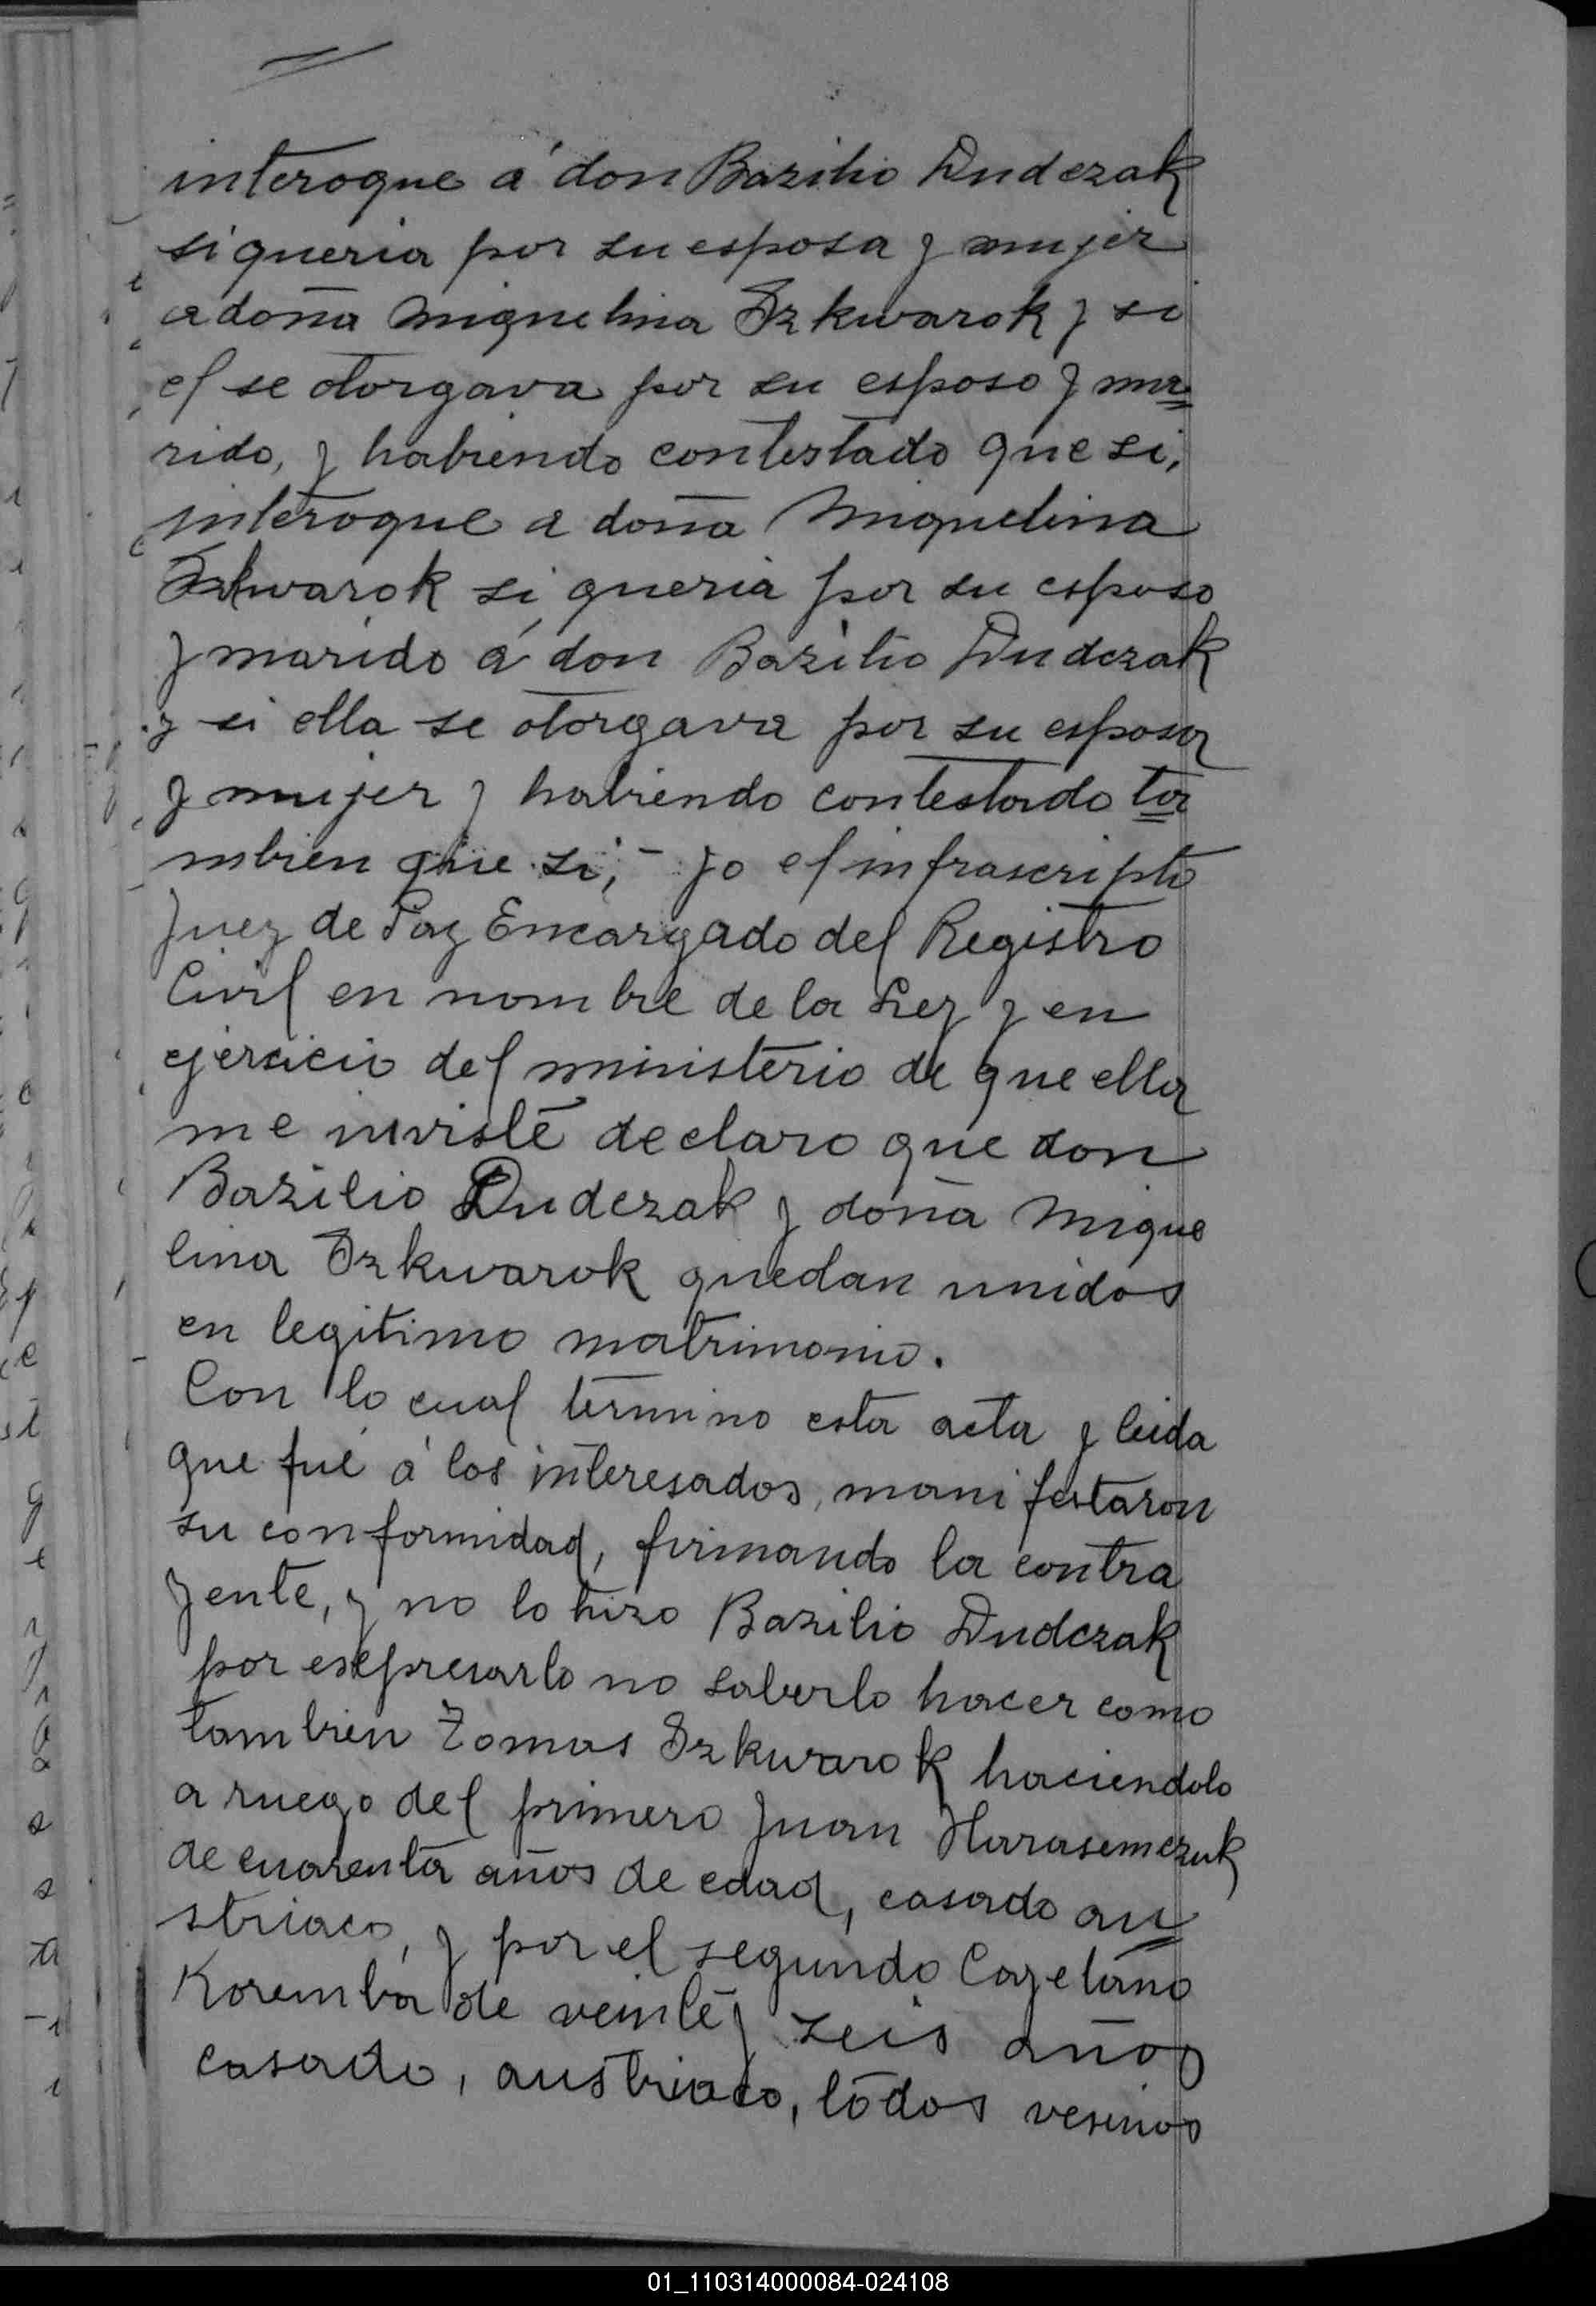 interogue á don Bazilio Dudczak
si queria por su esposa y mujer
a doña Miguelina Szkwarok y si
el se otorgava por su esposo y ma=
rido, y habiendo contestado que si,
interogue a doña Miguelina
Szkwarok si queria por su esposo
y marido á don Bazilio Dudczak
y si ella se otorgava por su esposa
y mujer y habiendo contestado ta=
mbien que si, - yo el infrascripto
Juez de Paz Encargado del Registro
Civil en nombre de la Ley y en
ejersicio del ministerio de que ella
me inviste declaro que don
Bazilio Dudczak y doña Migue
lina Szkwarok quedan unidos
en legitimo matrimonio.
Con lo cual termino esta acta y leida
que fué á los interesados, manifestaron
su conformidad, firmando la contra
yente, y no lo hizo Bazilio Dudczak
por esepresarlo no saberlo hacer como
tambien Tomas Szkwarok haciendolo
a ruego del primero Juan Harasemczuk
de cuarenta años de edad, casado au=
striaco, y por el segundo Cayetano
Koremba de veinte y seis años
casado, austriaco, todos vesinos
01_110314000084-024108